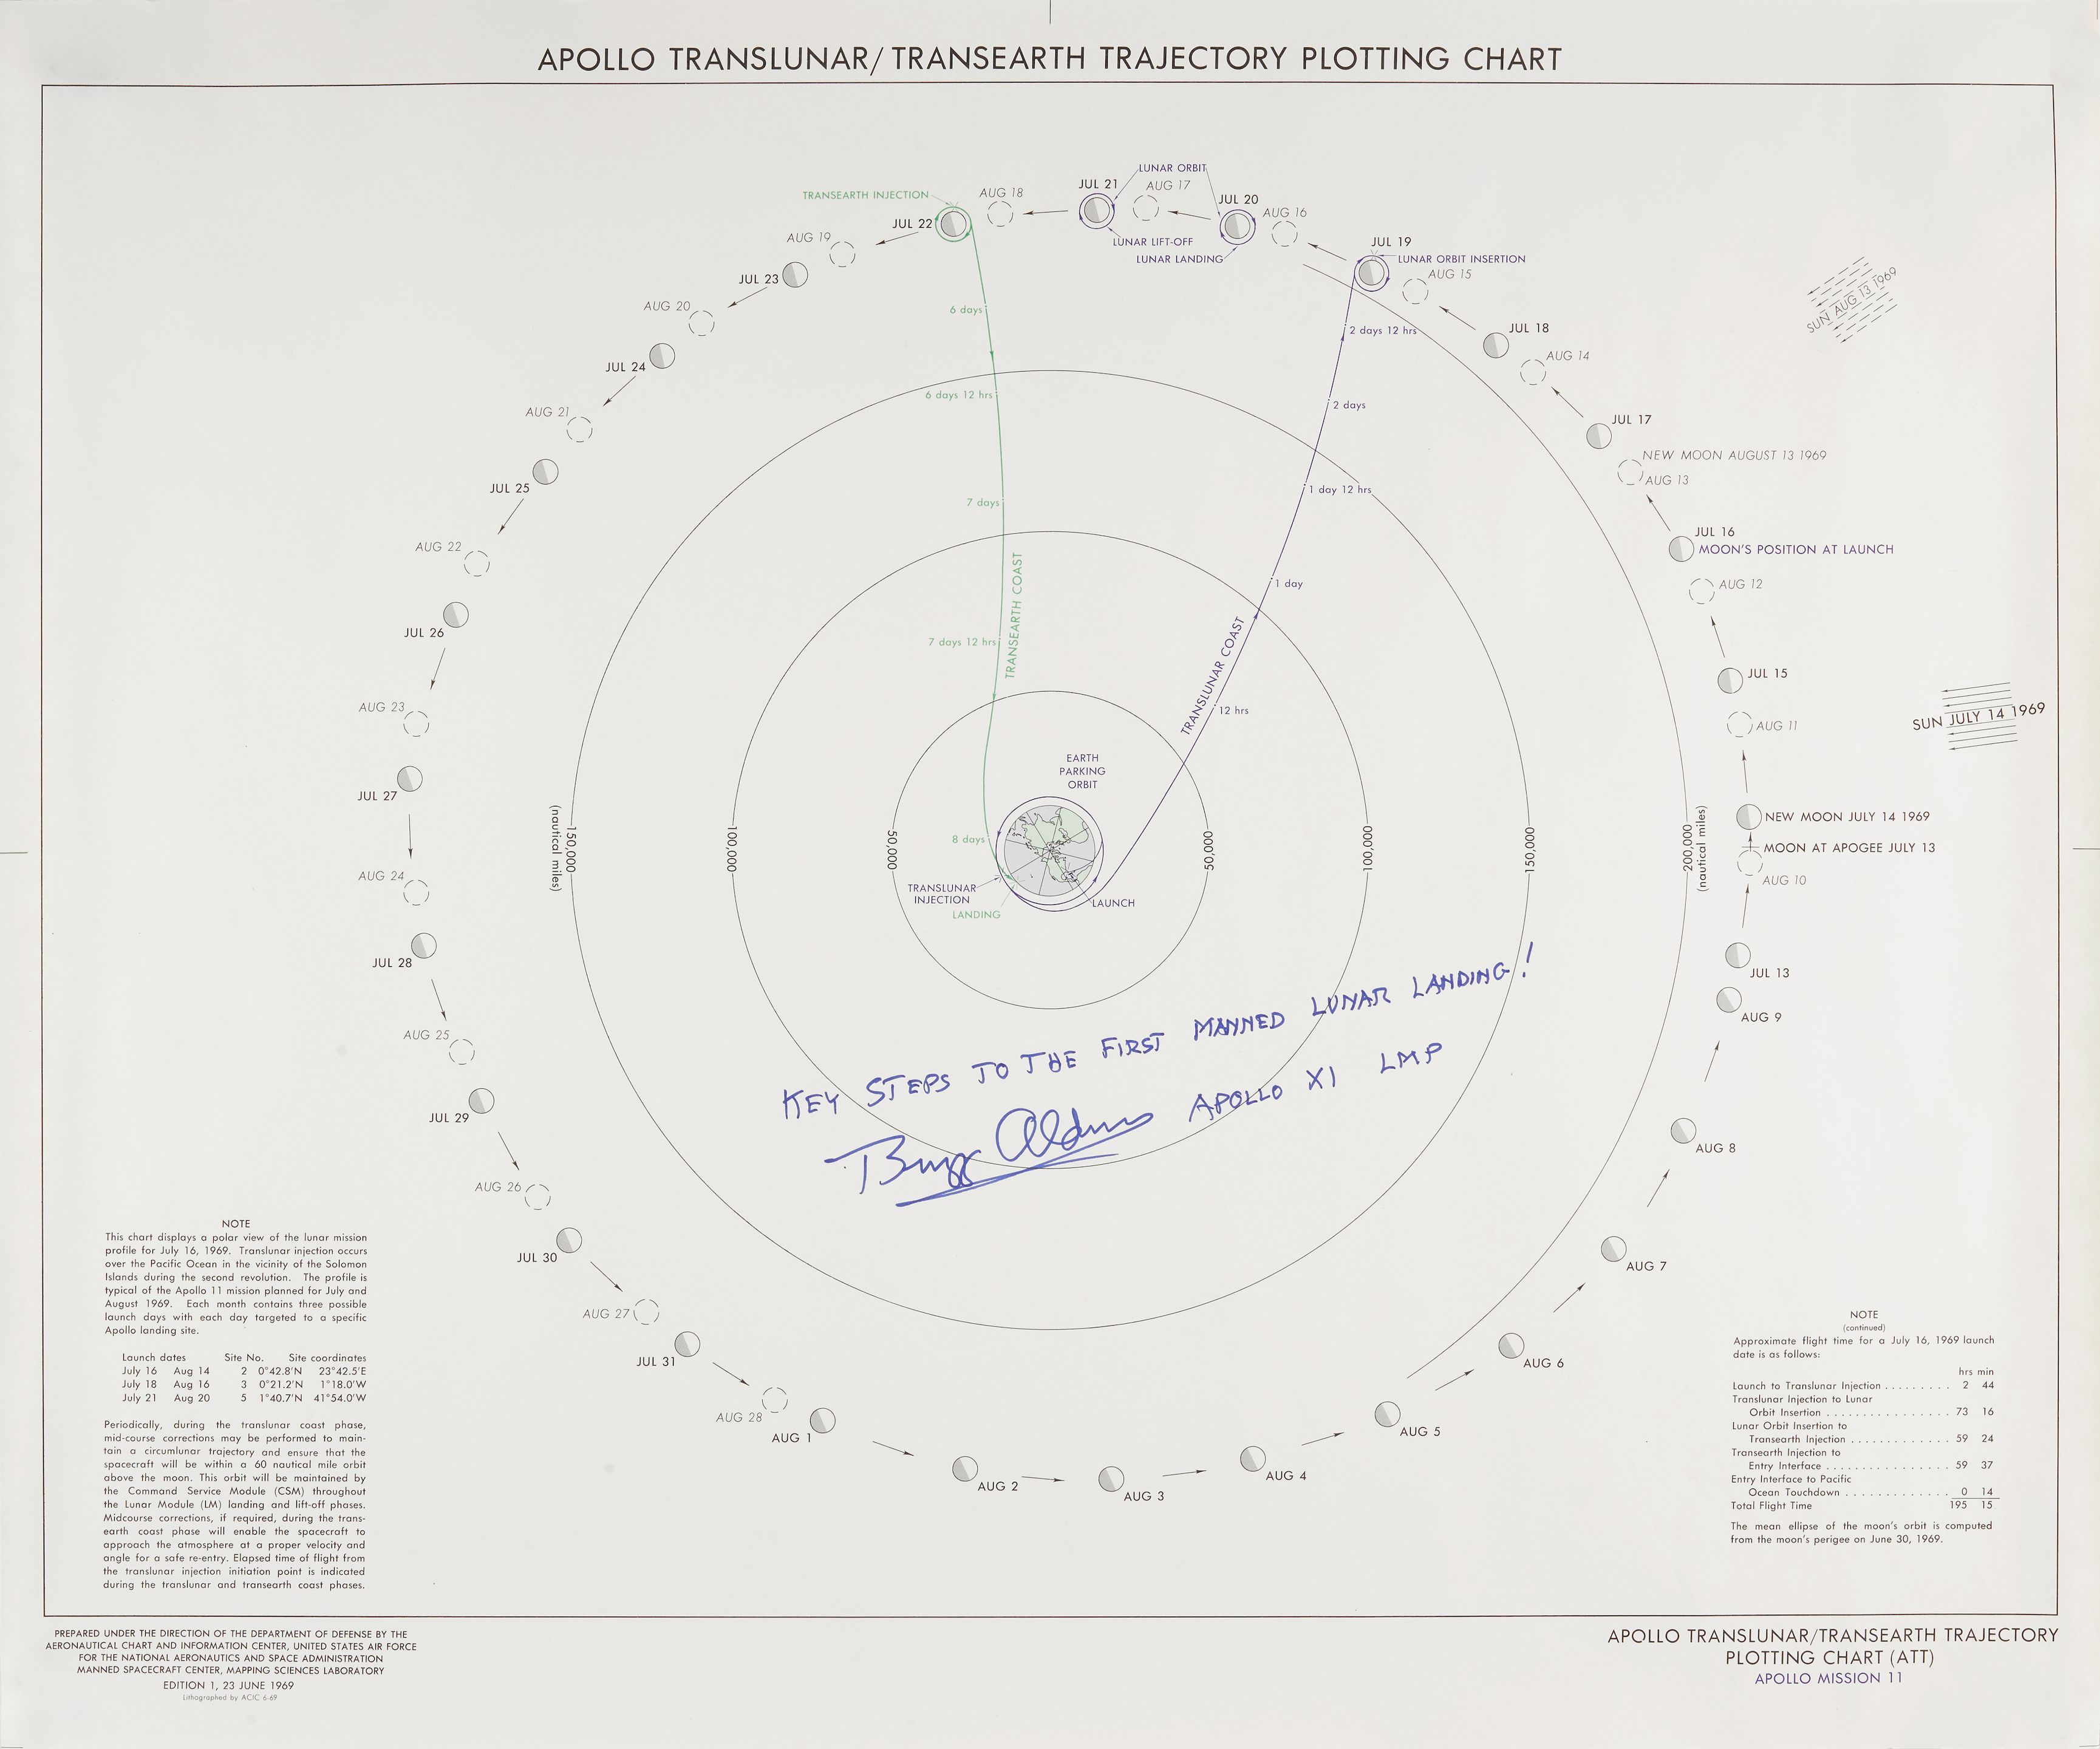 APOLLO TRANSLUNAR/TRANSEARTH TRAJECTORY PLOTTING CHART
LUNAR ORBIT
TRANSEARTH INJECTION
AUG 18
JUL 21
AUG 17
JUL 20
AUG 16
JUL 22
AUG 19
LUNAR LIFT-OFF
LUNAR LANDING
JUL 19
LUNAR ORBIT INSERTION
AUG 15
JUL 23
AUG 20
6 days
2 days 12 hrs
JUL 18
AUG 14
SUN AUG 13 1969
JUL 24
6 days 12 hrs
2 days
AUG 21
JUL 17
NEW MOON AUGUST 13 1969
AUG 13
JUL 25
7 days
1 day 12 hrs
JUL 16
MOON'S POSITION AT LAUNCH
AUG 22
1 day
AUG 12
JUL 26
7 days 12 hrs
TRANSEARTH COAST
TRANSLUNAR COAST
JUL 15
AUG 23
12 hrs
AUG 11
SUN JULY 14 1969
EARTH
PARKING
ORBIT
JUL 27
NEW MOON JULY 14 1969
MOON AT APOGEE JULY 13
8 days
(nautical miles)
150,000
100,000
50,000
50,000
100,000
150,000
200,000
(nautical miles)
AUG 24
AUG 10
TRANSLUNAR
INJECTION
LANDING
LAUNCH
JUL 28
JUL 13
AUG 9
KEY STEPS TO THE FIRST MANNED LUNAR LANDING!
Buzz Aldrin APOLLO XI LMP
AUG 25
JUL 29
AUG 8
AUG 26
JUL 30
AUG 7
AUG 27
JUL 31
AUG 6
AUG 28
AUG 1
AUG 5
AUG 2
AUG 3
AUG 4
NOTE
This chart displays a polar view of the lunar mission
profile for July 16, 1969. Translunar injection occurs
over the Pacific Ocean in the vicinity of the Solomon
Islands during the second revolution. The profile is
typical of the Apollo 11 mission planned for July and
August 1969. Each month contains three possible
launch days with each day targeted to a specific
Apollo landing site.
Launch dates Site No. Site coordinates
July 16 Aug 14 2 0°42.8'N 23°42.5'E
July 18 Aug 16 3 0°21.2'N 1°18.0'W
July 21 Aug 20 5 1°40.7'N 41°54.0'W
Periodically, during the translunar coast phase,
mid-course corrections may be performed to main-
tain a circumlunar trajectory and ensure that the
spacecraft will be within a 60 nautical mile orbit
above the moon. This orbit will be maintained by
the Command Service Module (CSM) throughout
the Lunar Module (LM) landing and lift-off phases.
Midcourse corrections, if required, during the trans-
earth coast phase will enable the spacecraft to
approach the atmosphere at a proper velocity and
angle for a safe re-entry. Elapsed time of flight from
the translunar injection initiation point is indicated
during the translunar and transearth coast phases.
NOTE
(continued)
Approximate flight time for a July 16, 1969 launch
date is as follows:
hrs min
Launch to Translunar Injection . . . . . . . . . 2 44
Translunar Injection to Lunar
Orbit Insertion . . . . . . . . . . . . . . . . 73 16
Lunar Orbit Insertion to
Transearth Injection . . . . . . . . . . . . . 59 24
Transearth Injection to
Entry Interface . . . . . . . . . . . . . . . . 59 37
Entry Interface to Pacific
Ocean Touchdown . . . . . . . . . . . . . 0 14
Total Flight Time 195 15
The mean ellipse of the moon's orbit is computed
from the moon's perigee on June 30, 1969.
PREPARED UNDER THE DIRECTION OF THE DEPARTMENT OF DEFENSE BY THE
AERONAUTICAL CHART AND INFORMATION CENTER, UNITED STATES AIR FORCE
FOR THE NATIONAL AERONAUTICS AND SPACE ADMINISTRATION
MANNED SPACECRAFT CENTER, MAPPING SCIENCES LABORATORY
EDITION 1, 23 JUNE 1969
Lithographed by ACIC 6-69
APOLLO TRANSLUNAR/TRANSEARTH TRAJECTORY
PLOTTING CHART (ATT)
APOLLO MISSION 11